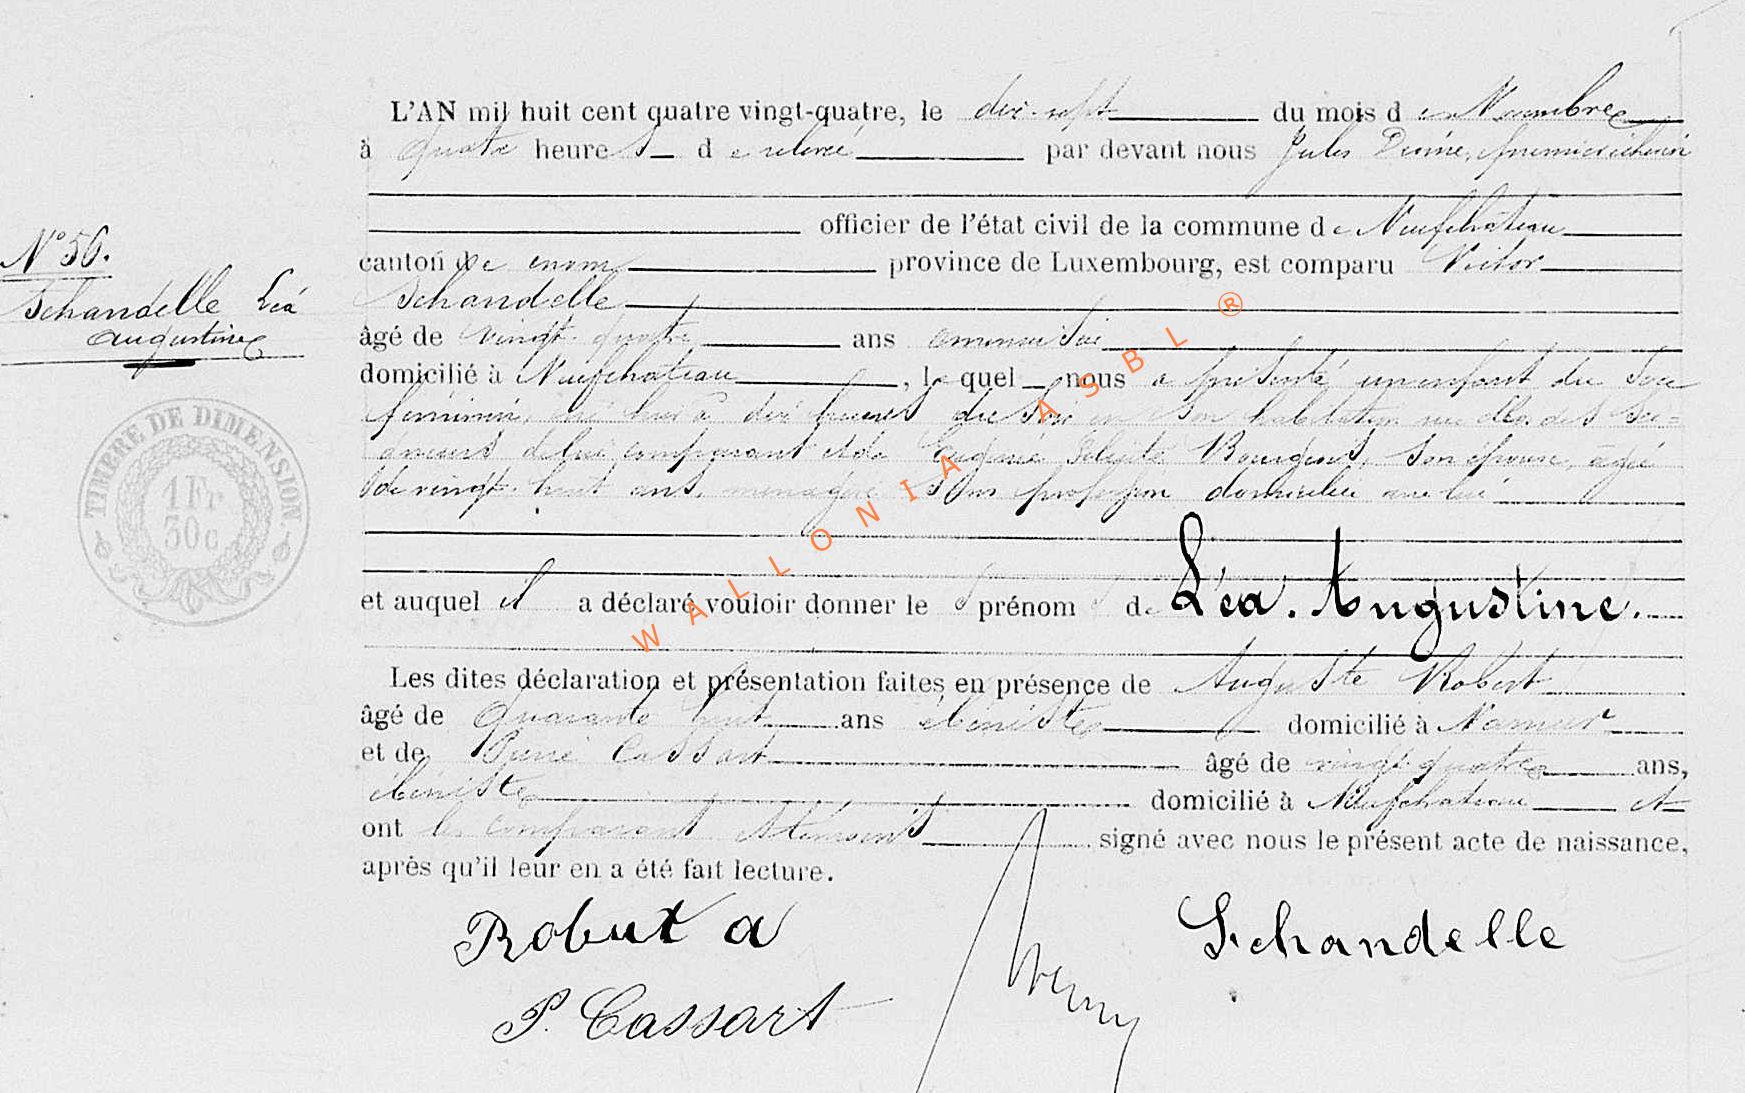 L'AN mil huit cent quatre vingt-quatre, le dix-sept du mois de Novembre
à quatre heures de relevé par devant nous Jules premier échevin
officier de l'état civil de la commune de Neufchâteau
N° 56.
canton de province de Luxembourg, est comparu Victor
Schandelle Léa
Augustine
Schandelle
âgé de vingt-quatre ans menuisier
domicilié à Neufchateau, lequel nous a présenté un enfant du sexe
féminin, né hier à dix heures du soir en son habitation rue
de lui comparant et de Eugénie Félicité Bourgeois, son épouse, âgée
de vingt-huit ans, ménagère sans profession domiciliée avec lui
TIMBRE DE DIMENSION
1 Fr
30 c
et auquel il a déclaré vouloir donner les prénoms de Léa. Augustine.
Les dites déclaration et présentation faites en présence de Auguste Robert
âgé de quarante huit ans ébéniste domicilié à Namur
et de Cassart âgé de vingt-quatre ans,
ébéniste domicilié à Neufchateau et
ont le comparant et témoins signé avec nous le présent acte de naissance,
après qu'il leur en a été fait lecture.
Robert a
Schandelle
P. Cassart
WALLONIA ASBL ®